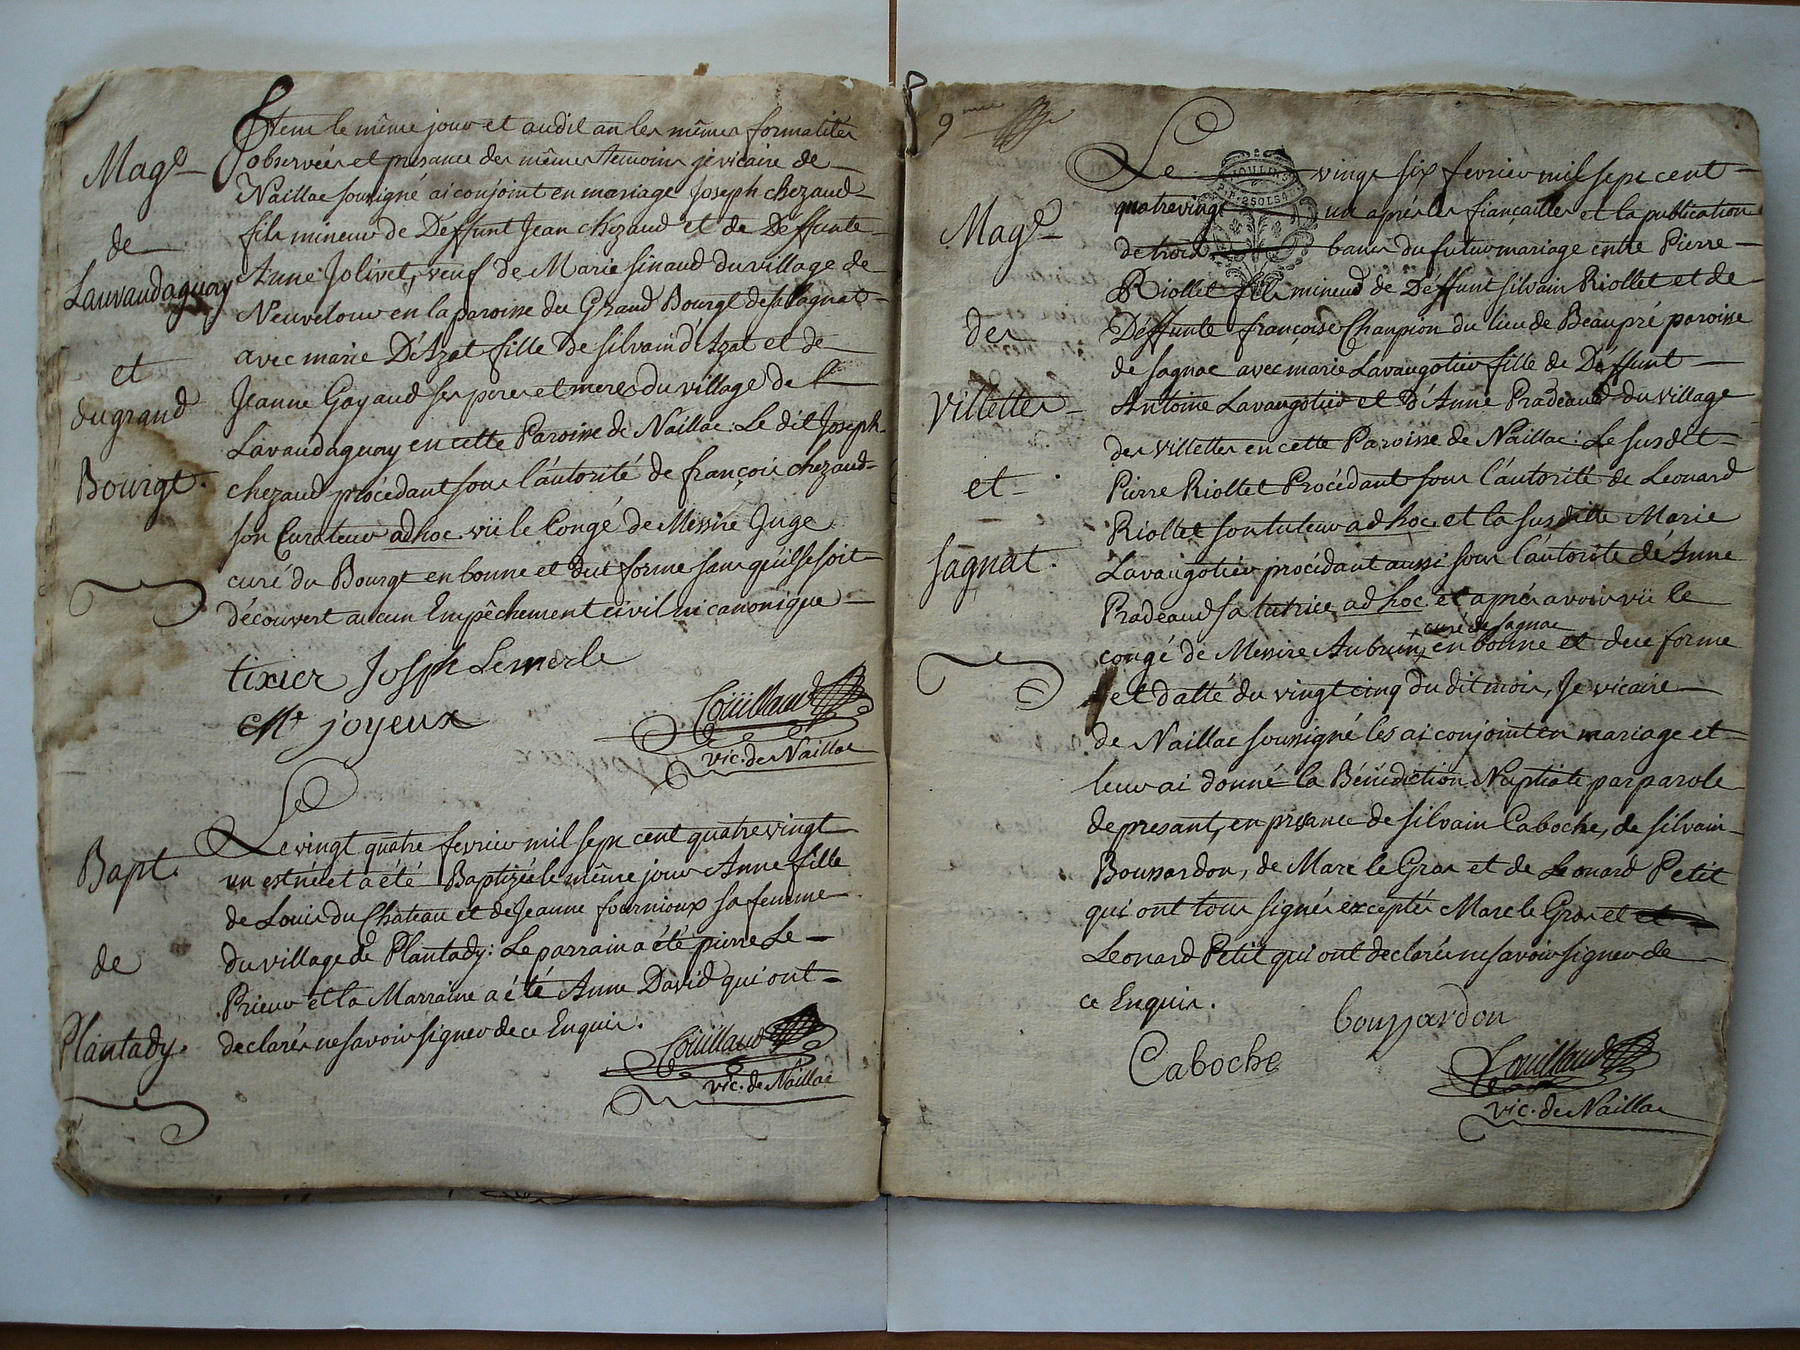 Mage
de
Lauvaudaguay
et
du grand
Bourgt.
Item le même jour et audit an les mêmes formalités
observées et presance des mêmes temoins je vicaire de
Naillac sousigné ai conjoint en mariage Joseph chezaud
fils mineur de Deffunt Jean chezaud et de Deffunte
Anne Jolivet, veuf de Marie sinaud du village de
Neuvelour en la paroisse du Grand Bourgt de salagnat
avec marie D'Azat fille de silvain d'Azat et de
Jeanne Gayaud ses peres et meres du village de
Lavaudaguay en cette Paroisse de Naillac: Le dit Joseph
chezaud procédant sous l'autorité de françois chezaud
son Curateur ad hoc. vü le Congé de Messire Juge
curé du Bourgt en bonne et dut forme sans qu'il se soit
découvert aucun Empêchement civil ni canonique
tixier Joseph Lemerle
Me joyeux
Couillaud
vic. de Naillac
Bapt.
de
Plantady.
Le vingt quatre fevrier mil sept cent quatre vingt
un est née et a été Baptizée le même jour Anne fille
de Louis du Chateau et de Jeanne fournioux sa femme
du village de Plantady: Le parrain a été pierre Le
Prieur et la Marraine a été Anne David qui ont
declarés ne savoir signer de ce Enquis.
Couillaud
vic. de Naillac
9me
Mage
des
Villettes
et
sagnat.
Le vingt six fevrier mil sept cent
MOULINS
2 SOLS
quatre vingt un aprés les fiançailles et la publication
de trois bans du futur mariage entre Pierre
Riollet fils mineur de Deffunt silvain Riollet et de
Deffunte françoise Champion du lieu de Beaupré paroisse
de sagnac avec marie Lavaugotier fille de Deffunt
Antoine Lavaugotier et D'Anne Pradeaud du village
des villettes en cette Paroisse de Naillac: Le susdit
Pierre Riollet Procédant sous l'autorité de Leonard
Riollet son tuteur ad hoc et la susditte Marie
Lavaugotier procédant aussi sous l'autorité dé Anne
Pradeaud sa tutrice ad hoc et aprés avoir vü le
curé de sagnac
congé de Messire Aubrun, en bonne et due forme
et datté du vingt cinq du dit mois, Je vicaire
de Naillac soussigné les ai conjoint en mariage et
leur ai donné la Bénédiction Nuptiale par parole
de presant, en presance de silvain Caboche, de silvain
Boussardon, de Marc le Gros et de Leonard Petit
qui ont tous signés exceptés Marc le Gros et et
Leonard Petit qui ont declarés ne savoir signer de
ce Enquis.
boussardon
Caboche
Couillaud
vic. de Naillac